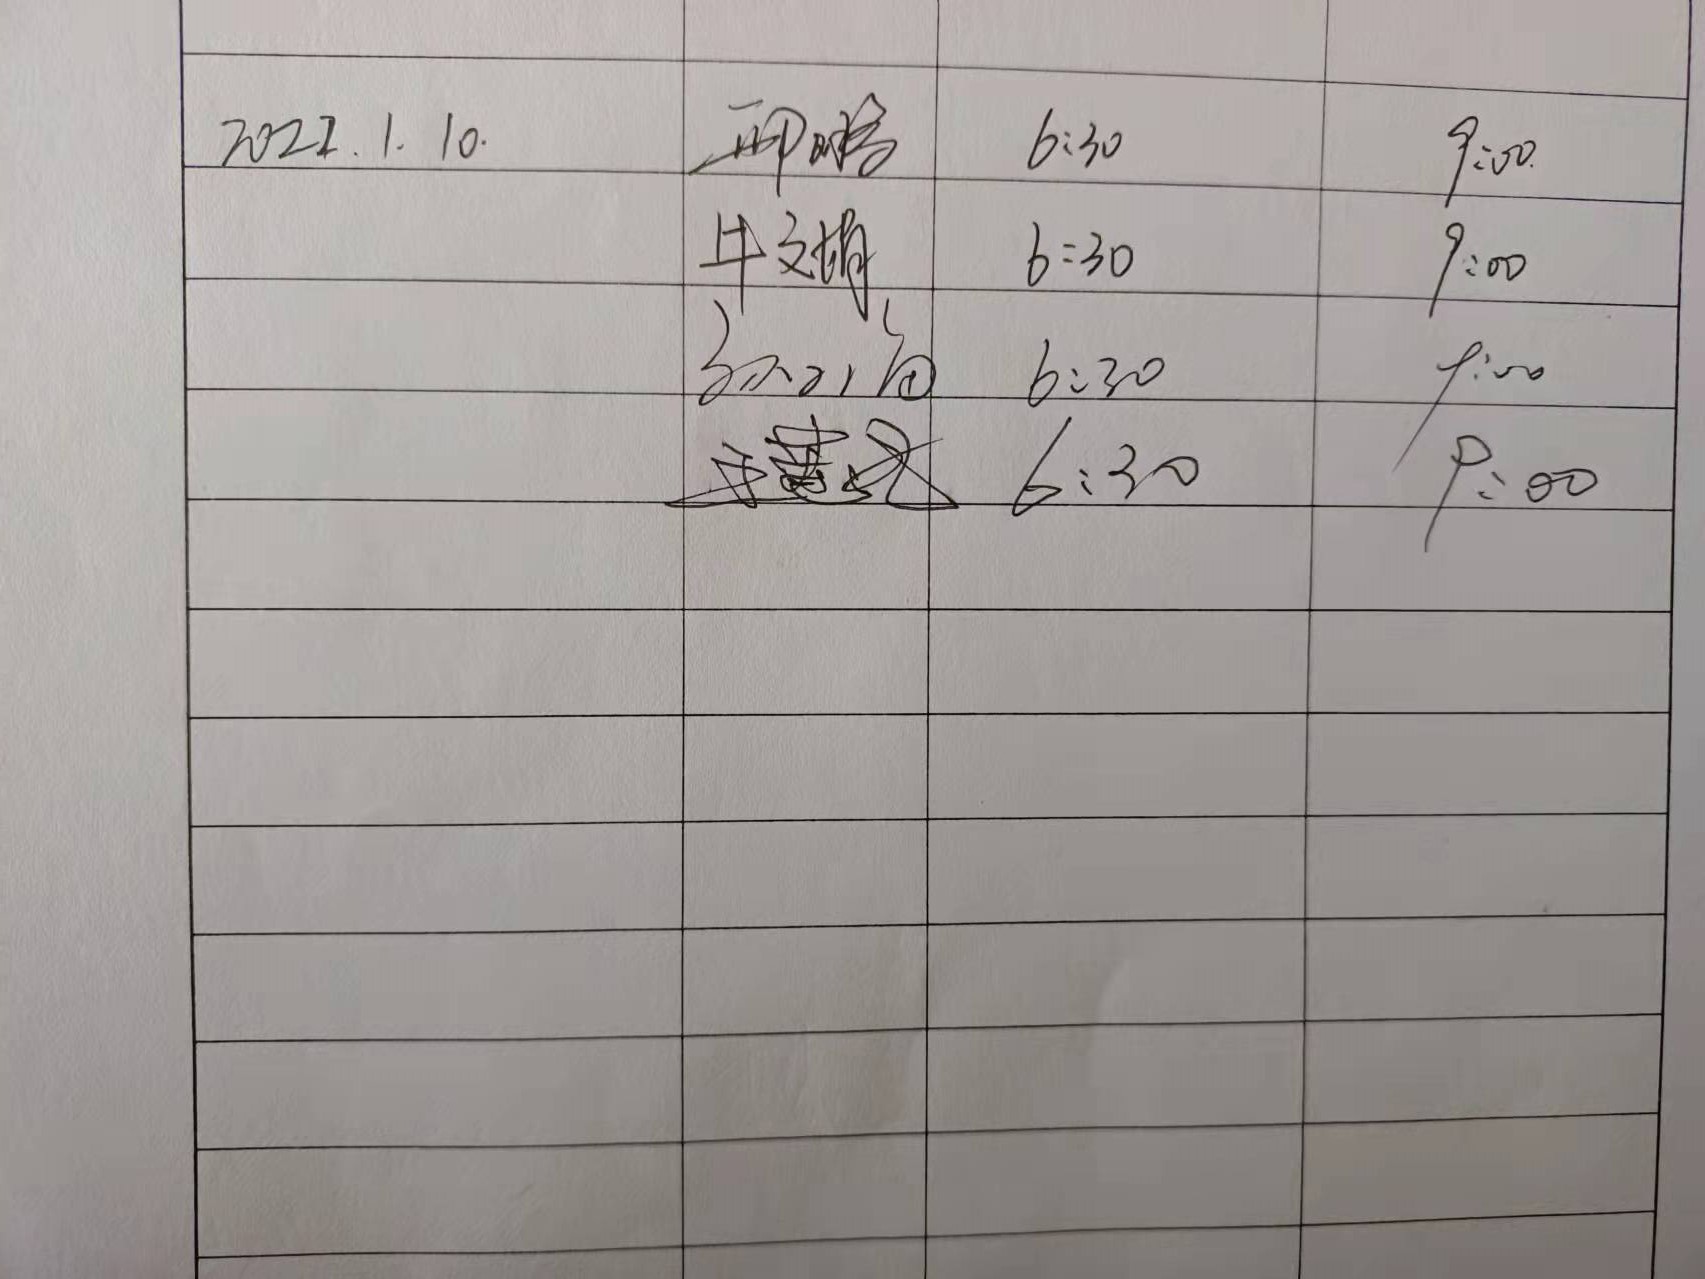 2022.1.10. 6:30 9:00
牛文娟 6:30 9:00
6:30 9:00
6:30 9:00